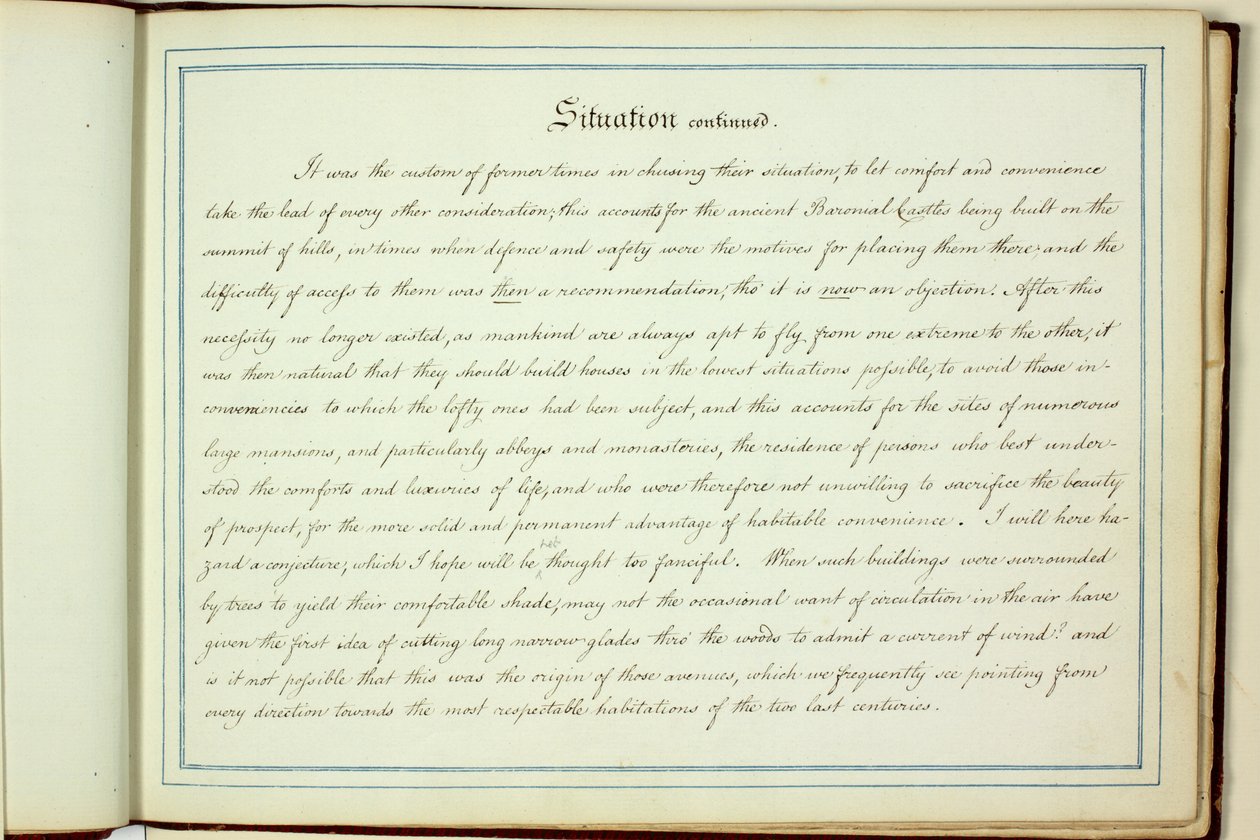 Situation continued.
It was the custom of former times in chusing their situation, to let comfort and convenience
take the lead of every other consideration; this accounts for the ancient Baronial Castles being built on the
summit of hills, in times when defence and safety were the motives for placing them there; and the
difficulty of access to them was then a recommendation, tho' it is now an objection. After this
necessity no longer existed, as mankind are always apt to fly from one extreme to the other, it
was then natural that they should build houses in the lowest situations possible, to avoid those in-
conveniencies to which the lofty ones had been subject, and this accounts for the sites of numerous
large mansions, and particularly abbeys and monasteries, the residence of persons who best under-
stood the comforts and luxuries of life, and who were therefore not unwilling to sacrifice the beauty
of prospect, for the more solid and permanent advantage of habitable convenience. I will here ha-
zard a conjecture, which I hope will be not thought too fanciful. When such buildings were surrounded
by trees to yield their comfortable shade, may not the occasional want of circulation in the air have
given the first idea of cutting long narrow glades thro' the woods to admit a current of wind? and
is it not possible that this was the origin of those avenues, which we frequently see pointing from
every direction towards the most respectable habitations of the two last centuries.